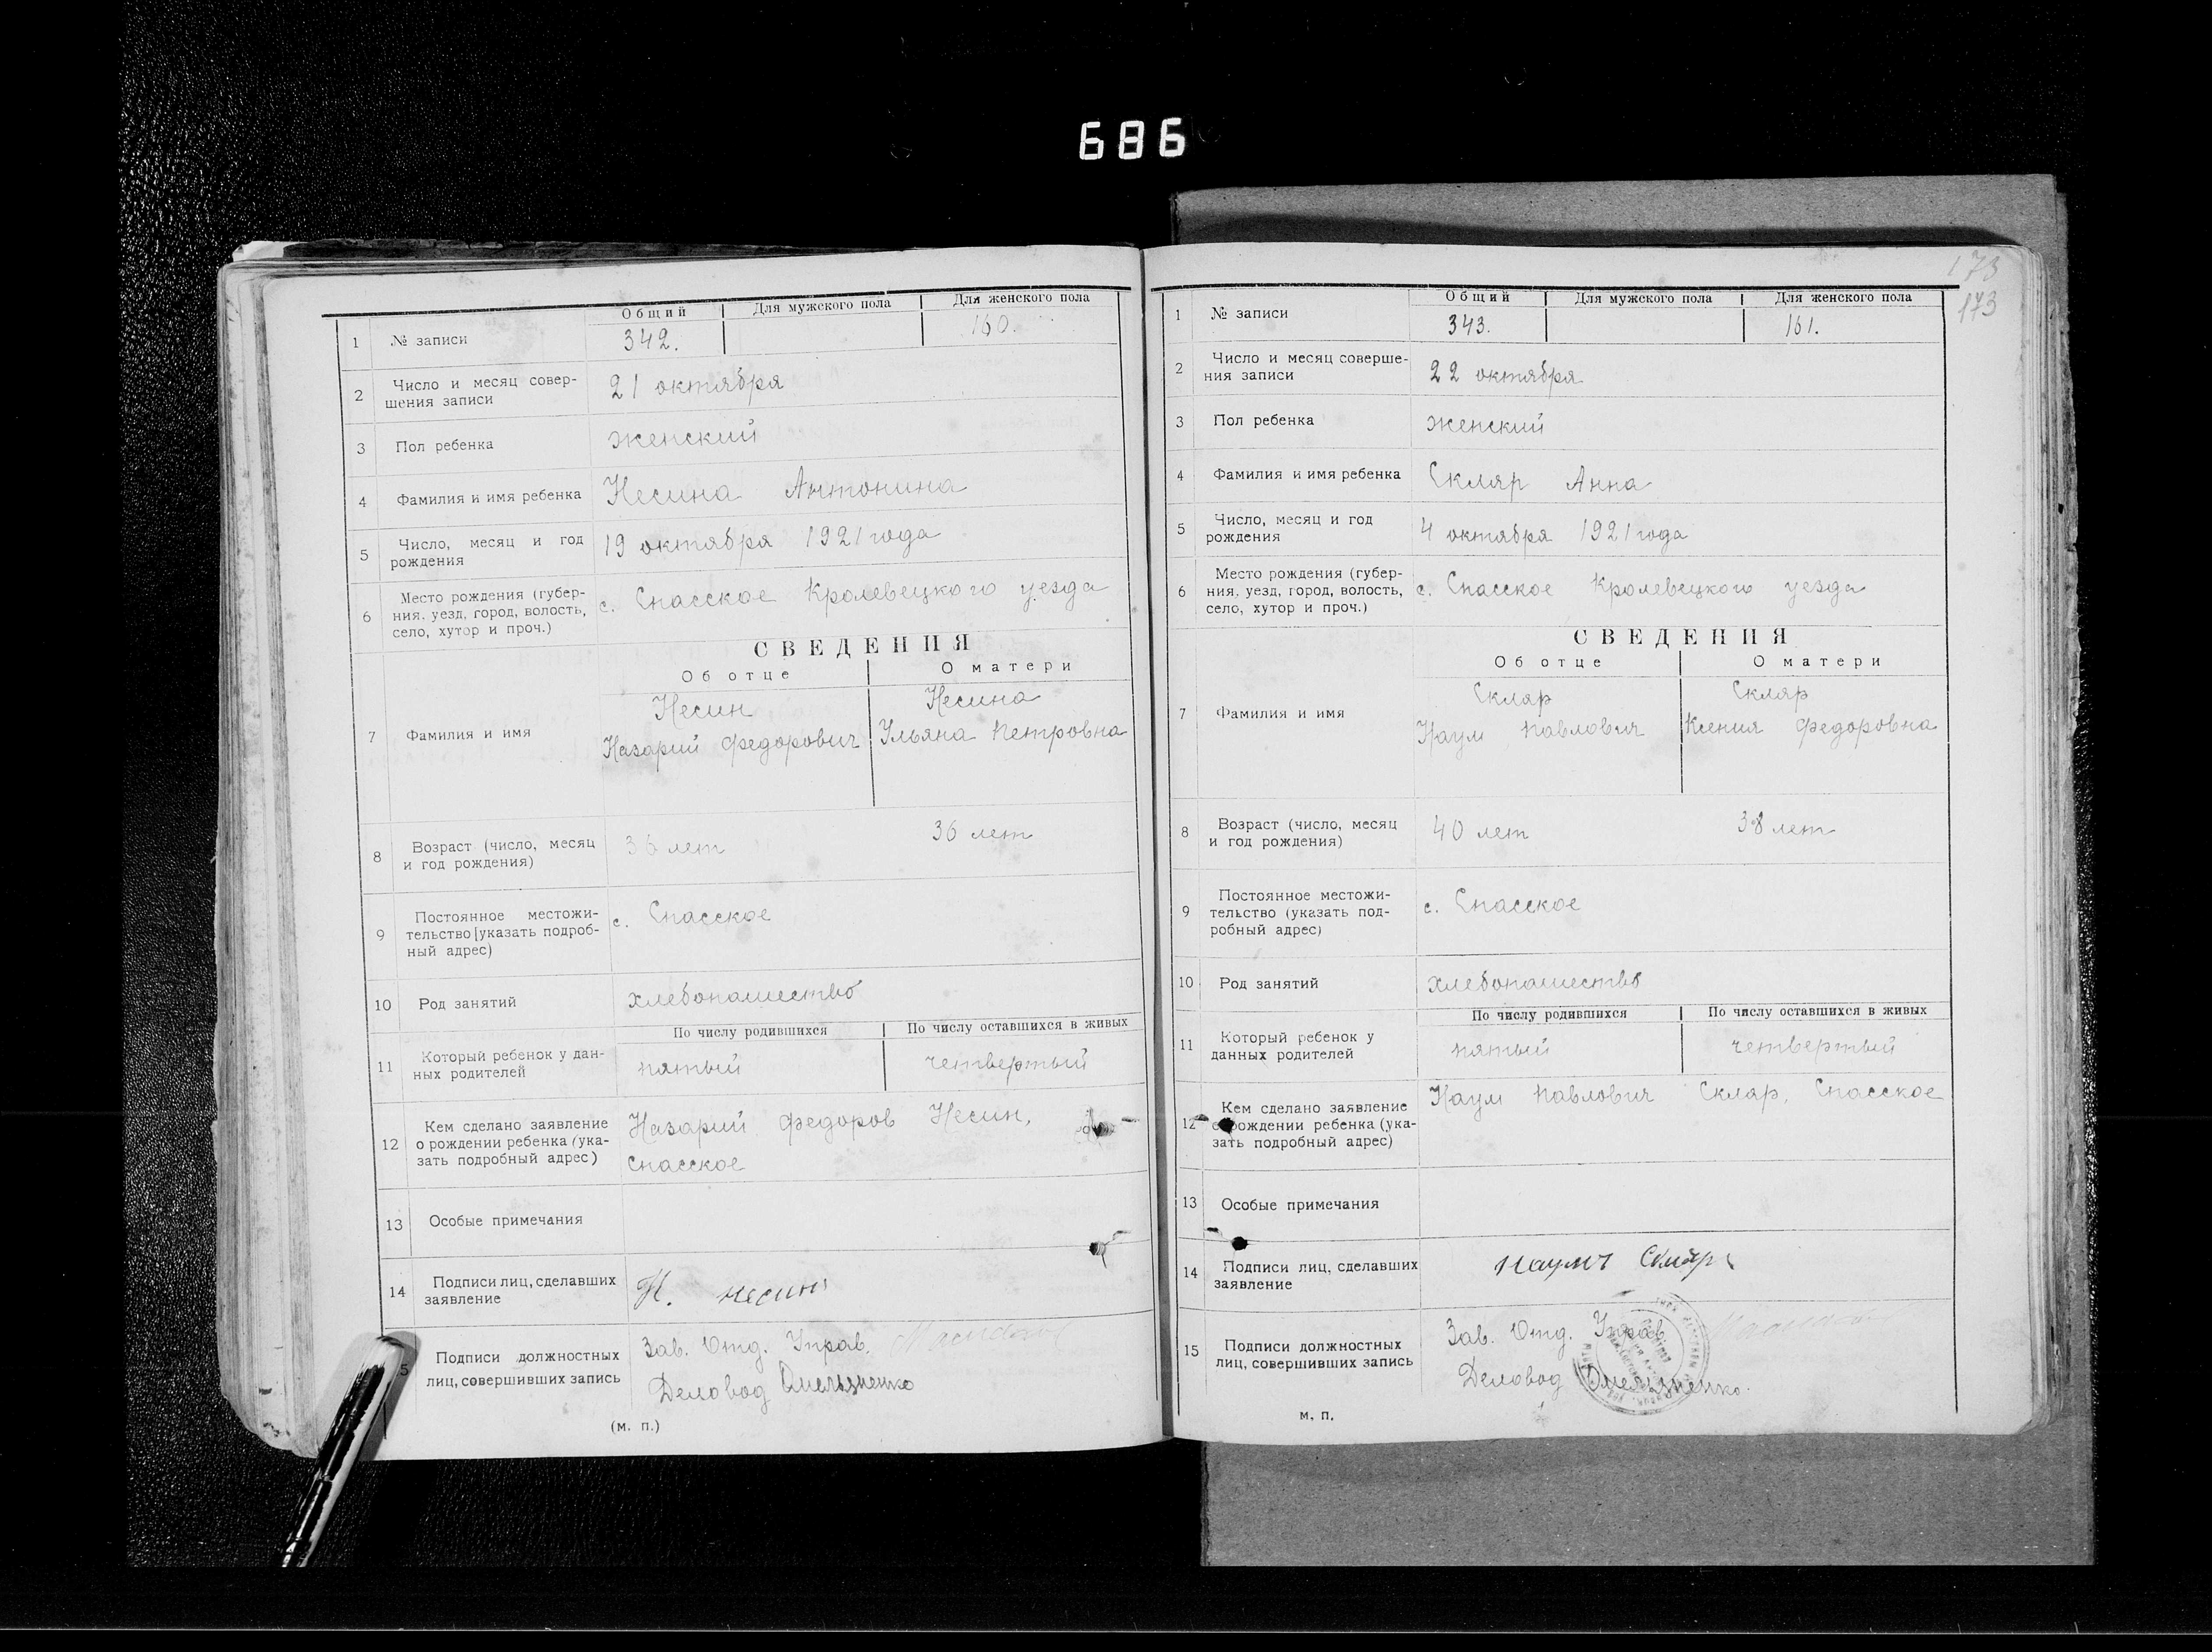 686
1 № записи
Общий
Для мужского пола
Для женского пола
342.
160.
2 Число и месяц совер-
шения записи
21 октября
3 Пол ребенка
женский
4 Фамилия и имя ребенка
Несина Антонина
5 Число, месяц и год
рождения
19 октября 1921 года
6 Место рождения (губер-
ния, уезд, город, волость,
село, хутор и проч.)
с. Спасское Кролевецкого уезда
СВЕДЕНИЯ
Об отце
О матери
7 Фамилия и имя
Несин
Назарий Федорович
Несина
Ульяна Петровна
8 Возраст (число, месяц
и год рождения)
36 лет
36 лет
9 Постоянное местожи-
тельство [указать подроб-
ный адрес)
с. Спасское
10 Род занятий
хлебопашество
11 Который ребенок у дан-
ных родителей
По числу родившихся
По числу оставшихся в живых
пятый
четвертый
12 Кем сделано заявление
о рождении ребенка (ука-
зать подробный адрес)
Назарий Федоров Несин,
Спасское
13 Особые примечания
14 Подписи лиц, сделавших
заявление
Н. Несинъ
5 Подписи должностных
лиц, совершивших запись
Зав. Отд. Управ.
Деловод Омельяненко
(м. п.)
173
173
1 № записи
Общий
Для мужского пола
Для женского пола
343.
161.
2 Число и месяц соверше-
ния записи
22 октября
3 Пол ребенка
женский
4 Фамилия и имя ребенка
Скляр Анна
5 Число, месяц и год
рождения
4 октября 1921 года
6 Место рождения (губер-
ния, уезд, город, волость,
село, хутор и проч.)
с. Спасское Кролевецкого уезда
СВЕДЕНИЯ
Об отце
О матери
7 Фамилия и имя
Скляр
Наум Павлович
Скляр
Ксения Федоровна
8 Возраст (число, месяц
и год рождения)
40 лет
38 лет
9 Постоянное местожи-
тельство (указать под-
робный адрес)
с. Спасское
10 Род занятий
хлебопашество
11 Который ребенок у
данных родителей
По числу родившихся
По числу оставшихся в живых
пятый
четвертый
12 Кем сделано заявление
о рождении ребенка (ука-
зать подробный адрес)
Наум Павлович Скляр, Спасское
13 Особые примечания
14 Подписи лиц, сделавших
заявление
Наумъ Скляр
15 Подписи должностных
лиц, совершивших запись
Зав. Отд. Управ.
Деловод Омельяненко.
м. п.